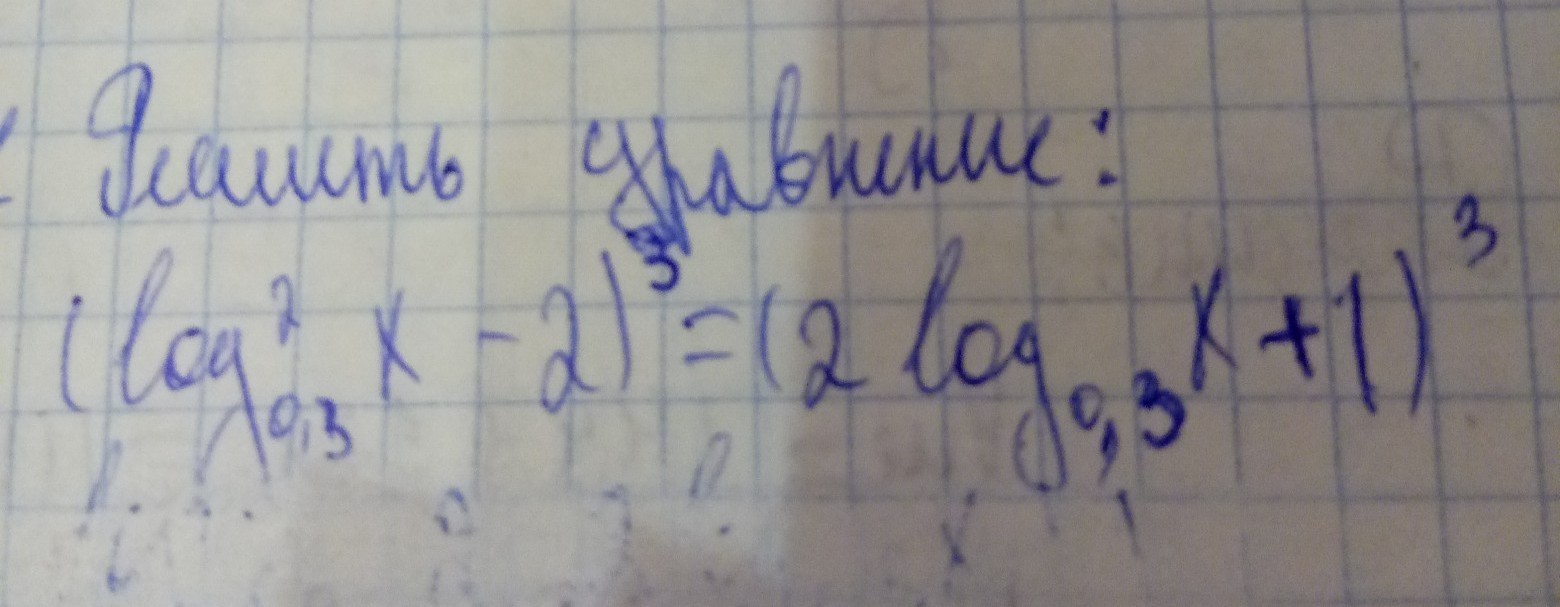 Решить уравнение:
(log²₀,₃ x - 2)³ = (2 log₀,₃ x + 1)³